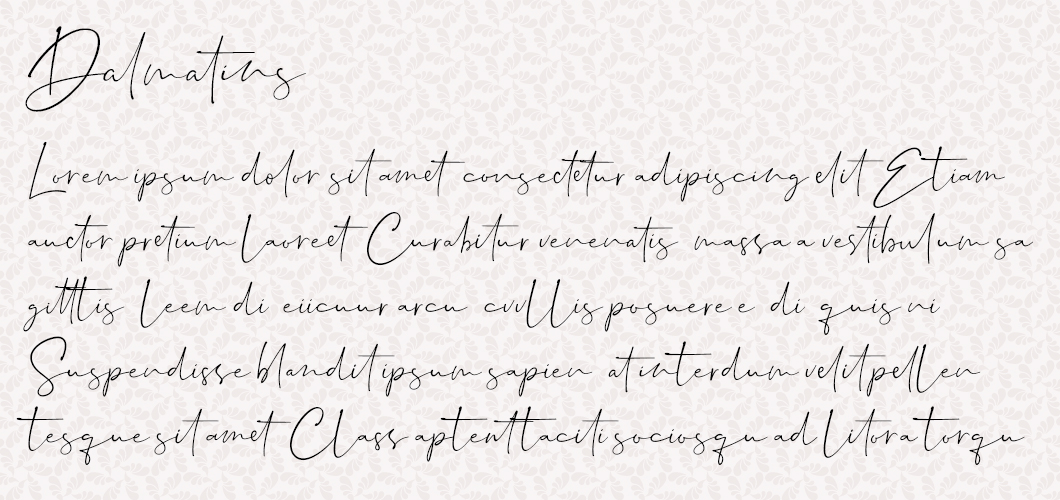 Dalmatins
Lorem ipsum dolor sit amet consectetur adipiscing elit Etiam
auctor pretium laoreet Curabitur venenatis massa a vestibulum sa
gittis Leem di eiicuur arcu cvullis posuere e di quis ni
Suspendisse blandit ipsum sapien at interdum velit pellen
tesque sit amet Class aptent taciti sociosqu ad litora torqu